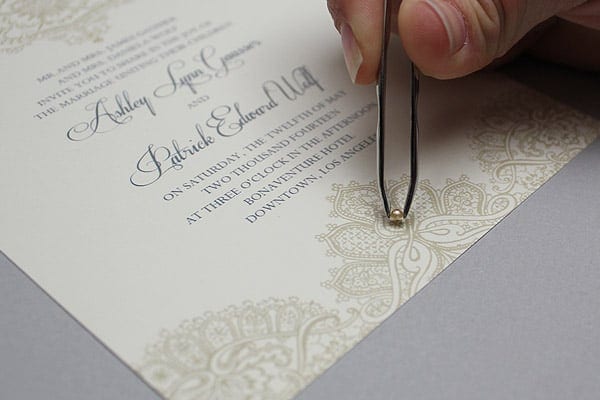 MR. AND MRS. JAMES GAUSSER
AND MRS. DANIEL P. WOLF
INVITE YOU TO SHARE IN THE JOY OF
THE MARRIAGE UNITING THEIR CHILDREN
Ashley Lynn Gausser
AND
Patrick Edward Wolf
ON SATURDAY, THE TWELFTH OF MAY
TWO THOUSAND FOURTEEN
AT THREE O'CLOCK IN THE AFTERNOON
BONAVENTURE HOTEL
DOWNTOWN, LOS ANGELES